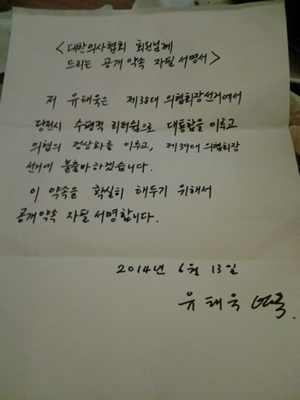 < 대한의사협회 회원님께
드리는 공개약속 자필 서명서 >
저 유태욱은 제38대 의협회장선거에서
당선시 수평적 리더쉽으로 대통합을 이루고
의협의 정상화를 이루고, 제39대 의협회장
선거에 불출마하겠습니다.
이 약속을 확실히 해두기 위해서
공개약속 자필 서명합니다.
2014년 6월 13일
유태욱